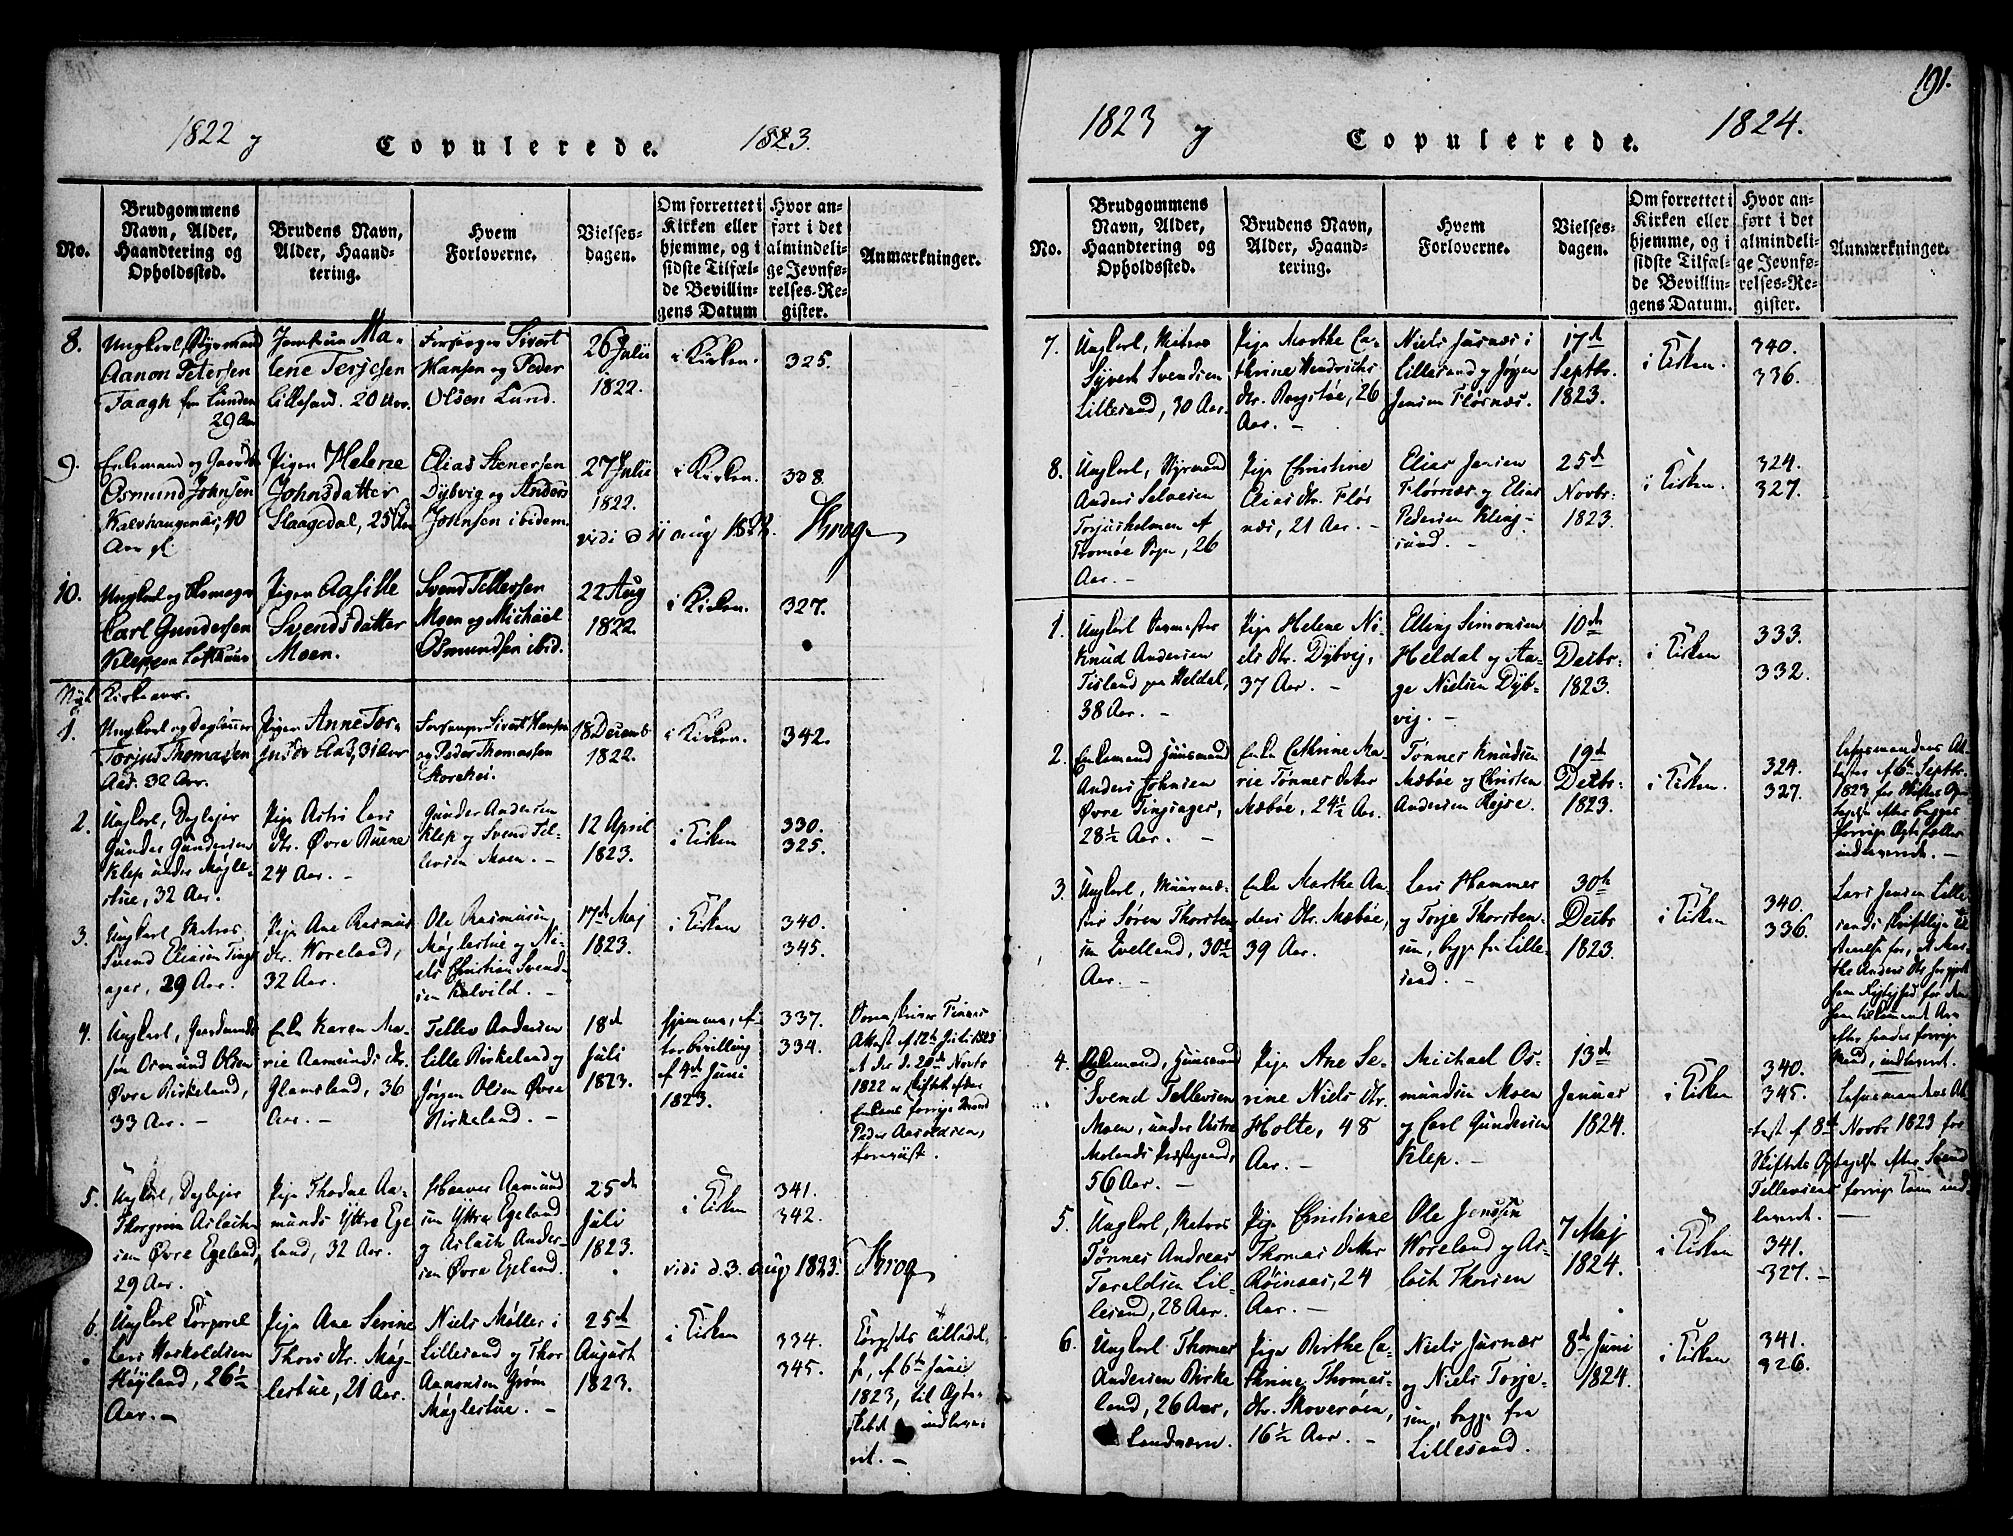 191.
1822 og
Copulerede.
1823.
No.
Brudgommens
Navn, Alder,
Haandtering og
Opholdssted.
Brudens Navn,
Alder, Haand-
tering.
Hvem
Forloverne.
Vielses-
dagen.
Om forrettet i
Kirken eller
hjemme, og i
sidste Tilfæl-
de Bevillin-
gens Datum
Hvor an-
ført i det
almindeli-
ge Jevnfø-
relses-Re-
gister.
Anmærkninger.
8.
Ungkarl, Styrmand
Aanon Petersen
Taagh fra Lunden
29 Aar
Jomfrue Ma-
lene Terjesen
Lillesand. 20 Aar.
Forsanger Sivert
Hansen og Peder
Olsen Lund.
26 Julii
1822.
i Kirken.
325.
9.
Enkemand og
Osmund Johnsen
Kalvhaugenæs, 40
Aar gl.
Pigen Helene
Johnsdatter
Slaagedal, 25 Aar
Elias Stenersen
Dybvig og Anders
Johnsen ibidem.
27 Julii
1822.
i Kirken.
338.
vidi d 11 aug 1822. Krog
10.
Ungkarl og
Carl Gundersen
Klep
Pigen Aasille
Svendsdatter
Moen.
Svend Tellefsen
Moen og Michael
Osmundsen ibid.
22 Aug
1822.
i Kirken.
327.
Nyt Kirkeaar.
1.
Ungkarl og Dagleier
Torjus Thomassen
Aas. 32 Aar.
Pigen Anne Tor-
31 Aar
Forsanger Sivert Hansen
og Peder Thomassen
18 Decemb
1822.
i Kirken.
342.
2.
Ungkarl, Daglejer
Gunder Gundersen
Klep under Møgle-
stue, 32 Aar.
Pige Astri Lars
Dtr. Øvre Ruene
24 Aar. –
Gunder Andersen
Klep og Svend Tel-
levsen Moen. –
12 April
1823.
i Kirken
330.
325.
3.
Ungkarl Matros
Svend Eliasen Ting-
ager, 29 Aar.
Pige Ane Rasmus
Dtr. Woreland,
32 Aar.
Ole Rasmusen,
Møglestue og Ni-
els Christian Svend-
sen Kalvild. –
17de Maj
1823.
i Kirken
340.
345.
4.
Ungkarl, Gaardmands
søn Osmund Olsen
Øvre Birkeland,
33 Aar. –
Enke Karen Ma-
rie Aamunds Dtr.
Glamsland, 36
Aar. –
Tellev Andersen
Lille Birkeland og
Jørgen Olsen Øvre
Birkeland. –
18de
Juli
1823.
hjemme, ef-
ter bevilling
af 4de Juni
1823.
337.
334.
Attest af 12te Juli 1823
at der d. 20de Novbr
1822 er skiftet efter
Enkens forrige Mand
Peder Aaroldsen,
forevist.
5.
Ungkarl, Daglejer
Thorgrim Aslach-
sen Øvre Egeland,
29 Aar.
Pige Thodne Aa-
munds Yttre Ege-
land, 32 Aar.
Haaver Aamund
sen Yttre Egeland
og Aslach Ander-
sen Øvre Egeland.
25de
Juli
1823.
i Kirken
341.
342.
vidi d. 3. aug 1823. Krog
6.
Ungkarl Corporal
Lars Haroldsen
Høyland, 26½
Aar. –
Pige Ane Serine
Thors Dtr. Møg-
lestue, 21 Aar.
Niels Møller i
Lillesand og Thor
Aanonsen Grom
Møglestue. –
25de
August
1823.
i Kirken
334.
345.
af 6te Juni
1823, til Ægte-
skabet indleve-
ret. –
1823 og
Copulerede.
1824.
No.
Brudgommens
Navn, Alder,
Haandtering og
Opholdssted.
Brudens Navn,
Alder, Haand-
tering.
Hvem
Forloverne.
Vielses-
dagen.
Om forrettet i
Kirken eller
hjemme, og i
sidste Tilfæl-
de Bevillin-
gens Datum.
Hvor an-
ført i det
almindeli-
ge Jevnfø-
relses-Re-
gister.
Anmærkninger.
7.
Ungkarl, Matros
Syvert Svendsen
Lillesand, 30 Aar.
Pige Marthe Ca-
thrine Hendrichs
Dtr. 26
Aar. –
Niels Jusnæs i
Lillesand og Jørgen
Jensen Flørnæs.
17de
Septbr.
1823.
i Kirken.
340.
336.
8.
Ungkarl, Styrmand
Anders
Torjusholmen af
Tromøe Sogn, 26
Aar. –
Pige Christine
Elias Dtr. Flør
næs, 21 Aar. –
Elias Jensen
Flørnæs og Elias
Pedersen Kling-
sund. –
25de
Novbr.
1823.
i Kirken.
324.
327.
1.
Ungkarl
Knud Andersen
Tisland paa Heldal,
38 Aar. –
Pige Helene Ni-
els Dtr. Dybvig,
37 Aar. –
Elling Simonsen
Heldal og Aa-
ge Nielsen Dyb-
vig. –
10de
Decbr.
1823.
i Kirken
333.
332.
2.
Enkemand Huusmand
Anders Johnsen
Øvre Tingsager,
28½ Aar. –
Enke Cathrine Ma-
rie Tønnes Datter
Mæbøe, 24½ Aar.
Tønnes Knudsen
Mæbøe og Christen
Andersen Rejse.
19de
Decbr.
1823.
i Kirken.
324.
327.
Lensmandens At-
tester af 6te Septbr.
1823 for Skiftes Op-
tagelse efter begges
forrige Ægtefæller
indleveret. –
3.
Ungkarl, Muurme-
ster Søren Thorsten-
sen Evelland, 30½
Aar. –
Enke Marthe An-
ders Dtr. Mæbøe,
39 Aar. –
Lars Hammer
og Torje Thorsten-
sen, begge fra Lille-
sand. –
30te
Decbr
1823.
i Kirken
340.
336.
Lars Jensen Lille-
sands skriftlige Til-
staaelse for, at Mar-
the Anders Dtr. har gjort
ham Rigtighed for den
ham tilkommende Arv
efter hendes forrige
Mand, indleveret.
4.
Enkemand, Huusmand
Svend Tellevsen
Moen, under Vestre
Molands Præstegaard,
56 Aar. –
Pige Ane Se-
rine Niels Dtr.
Holte, 48
Aar. –
Michael Os-
mundsen Moen
og Carl Gundersen
Klep. –
13de
Januar
1824.
i Kirken
340.
345.
Lensmandens At-
test af 8de Novbr 1823 for
Skiftets Optagelse efter Svend
Tellevsens forrige Kone ind-
leveret. –
5.
Ungkarl, Matros
Tønnes Andreas
Taraldsen Lil-
lesand, 28 Aar.
Pige Christiane
Thomas Datter
Røinaas, 24
Aar. –
Ole Jenssen
Woreland og As-
lach Thorsen
7 Maj
1824.
i Kirken
341.
327. –
6.
Ungkarl Thomas
Andersen Birke
land, 26 Aar,
Landværn.
Pige Birthe Ca-
thrine Thomas-
Dtr. Skoverøen,
16½ Aar. –
Niels Jusnæs
og Niels Torje-
sen, begge fra
Lillesand.
8de Juni
1824.
i Kirken
341.
326.